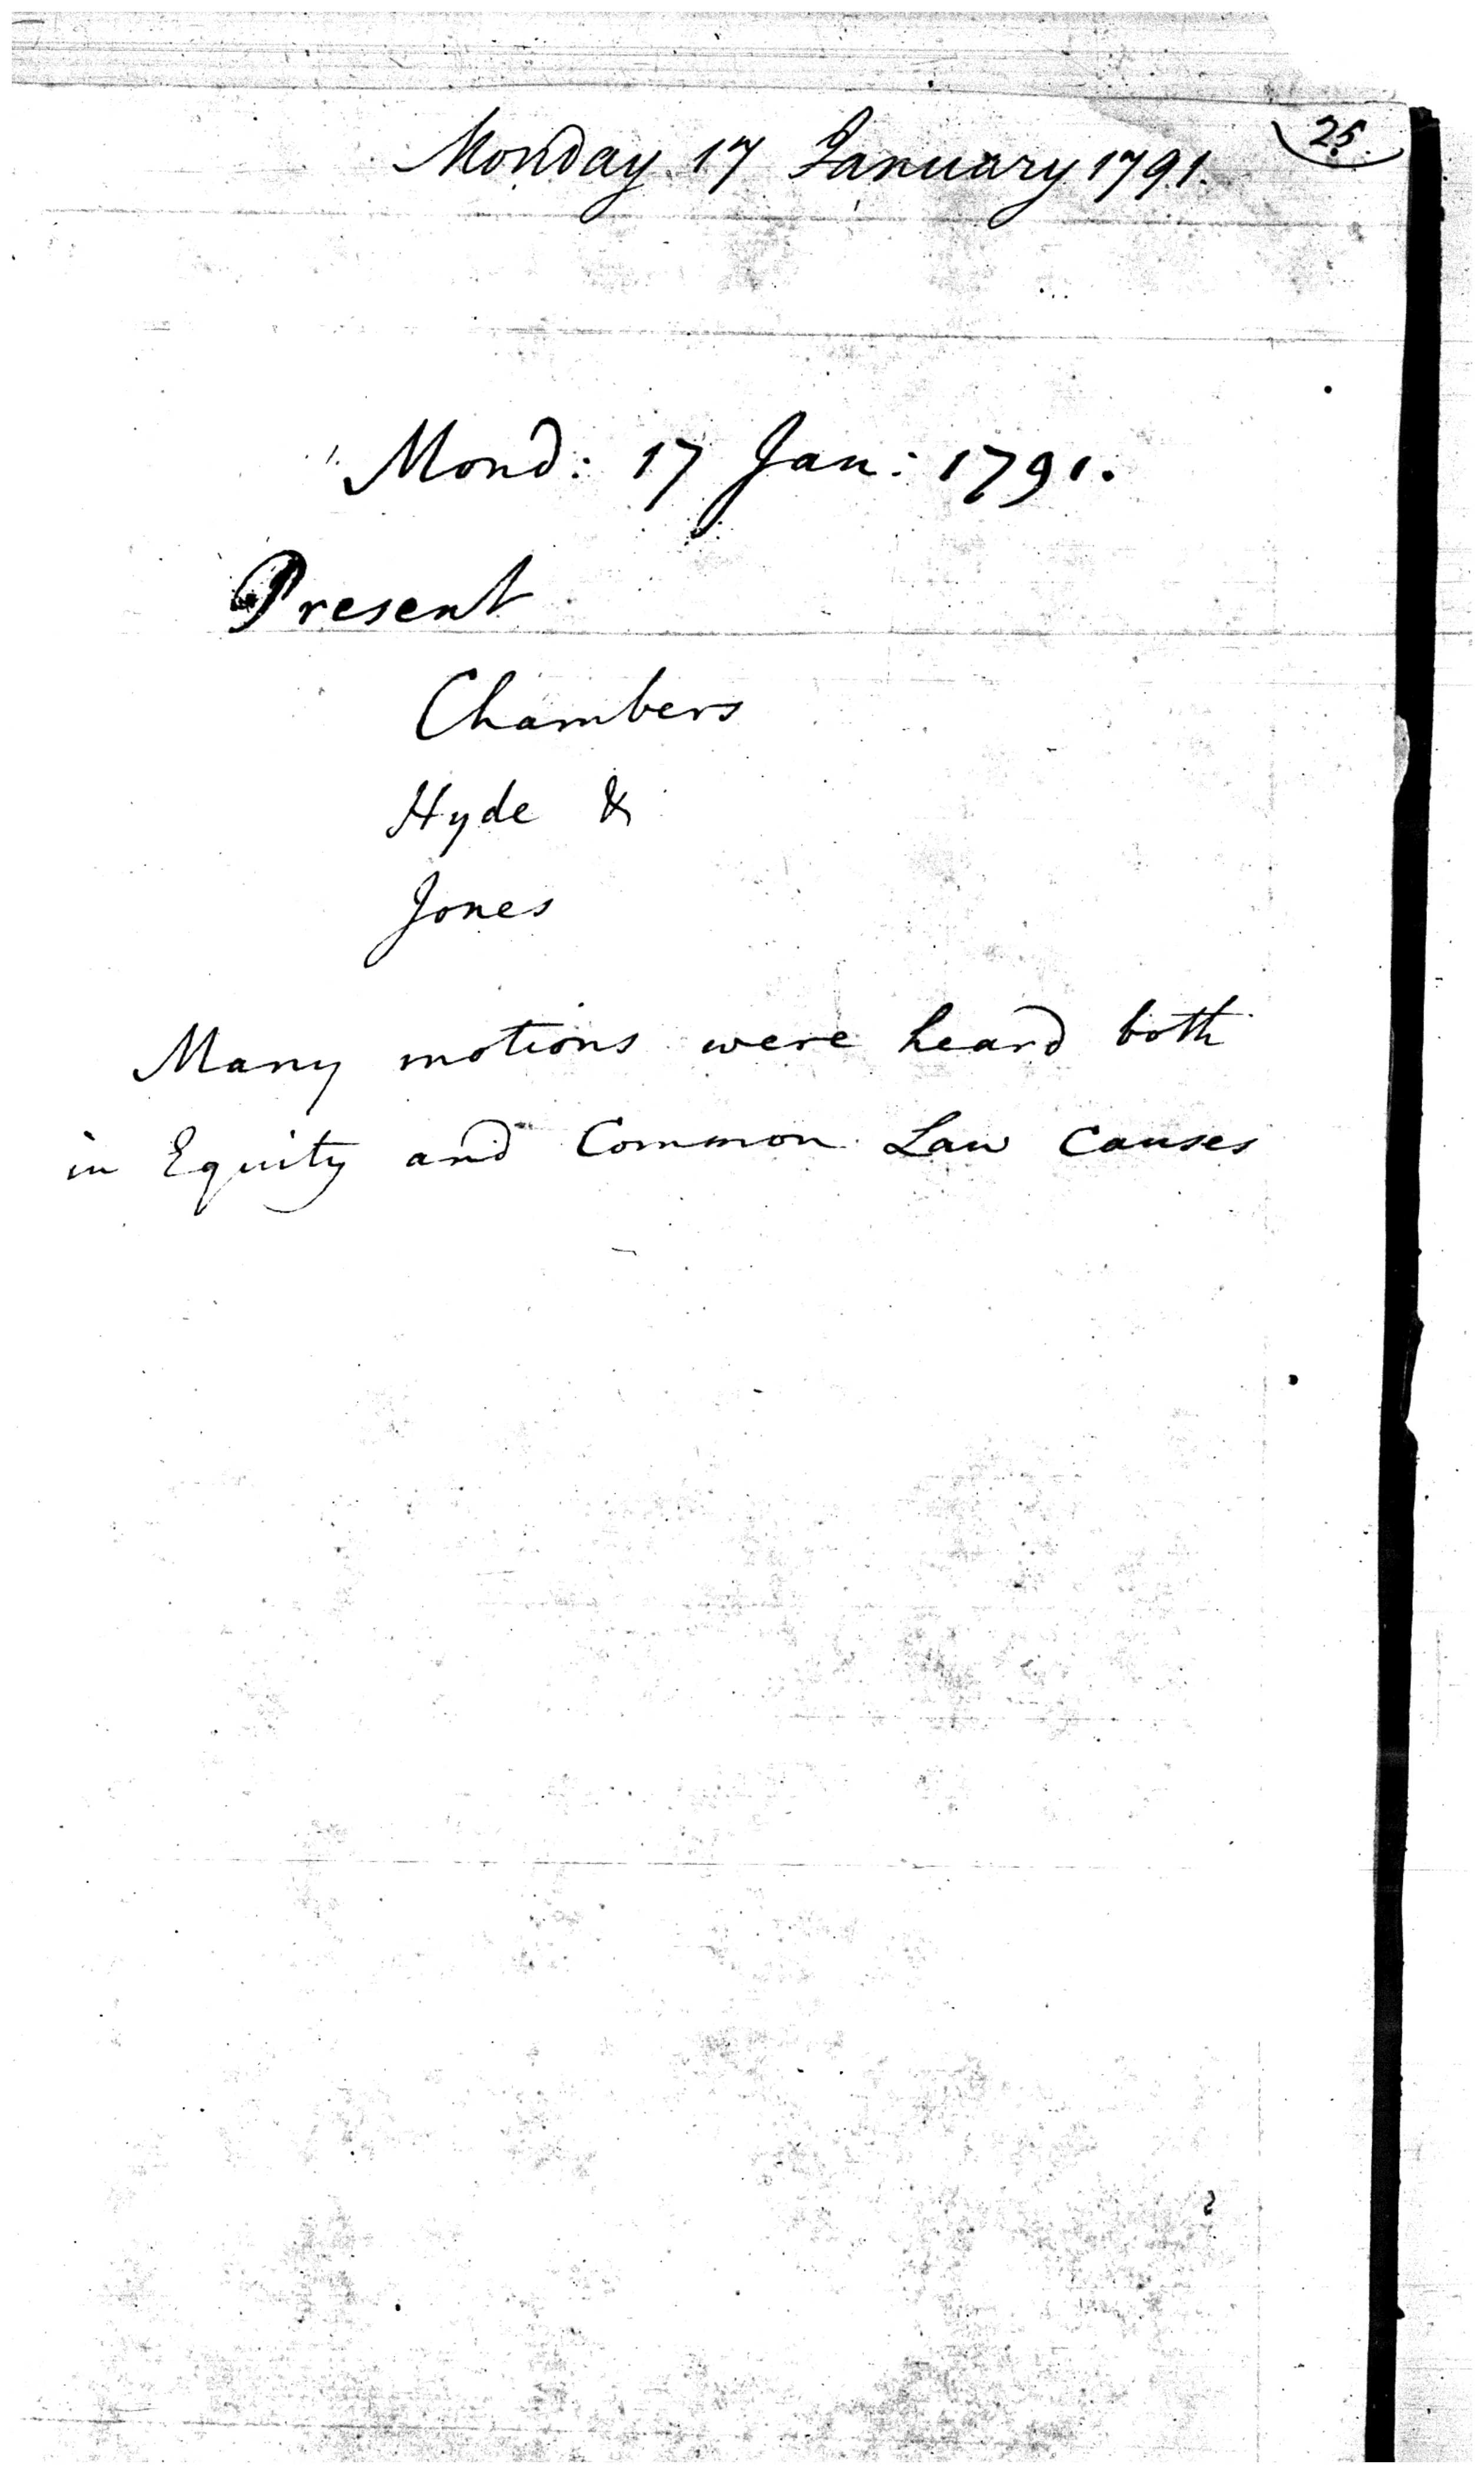 25.
Monday 17 January 1791.
Mond: 17 Jan: 1791.
Present
Chambers
Hyde &
Jones
Many motions were heard both
in Equity and Common Law causes